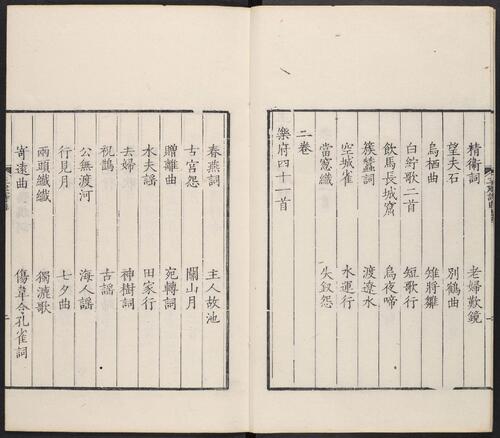 精衛詞 老婦歎鏡
望夫石 別鶴曲
烏栖曲 雉將雛
白紵歌二首 短歌行
飲馬長城窟 烏夜啼
簇蠶詞 渡遼水
空城雀 水運行
當窻織 失釵怨
二卷
樂府四十一首
春燕詞 主人故池
古宮怨 關山月
贈離曲 宛轉詞
水夫謡 田家行
去婦 神樹詞
祝鵲 古謡
公無渡河 海人謡
行見月 七夕曲
兩頭纖纖 獨漉歌
寄遠曲 傷韋令孔雀詞